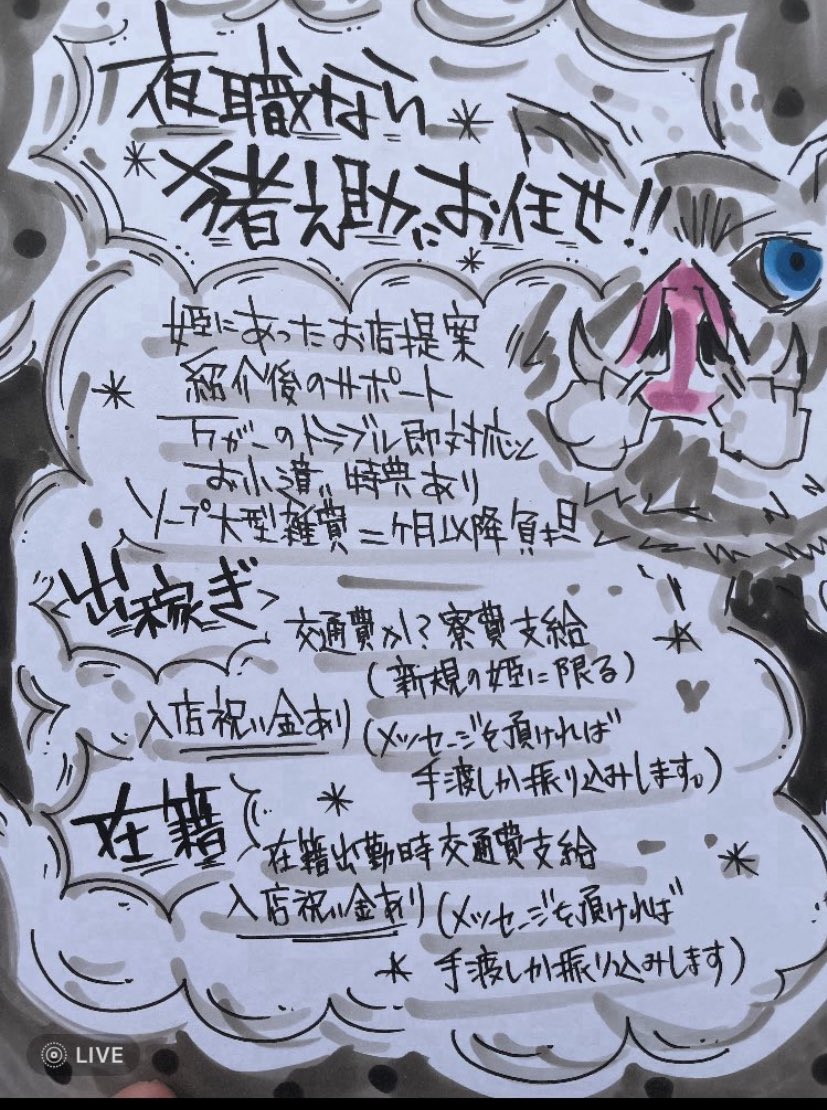 夜職なら
猪え助にお任せ!!
姫にあったお店提案
紹介後のサポート
万が一のトラブル即対応と
お小遣い特典あり
ソープ大型雑費二ヶ月以降負担
出稼ぎ
交通費か!?寮費支給
(新規の姫に限る)
入店祝い金あり(メッセージを頂ければ
手渡しか振り込みします。)
在籍
在籍出勤時交通費支給
入店祝い金あり(メッセージを頂ければ
手渡しか振り込みします)
LIVE